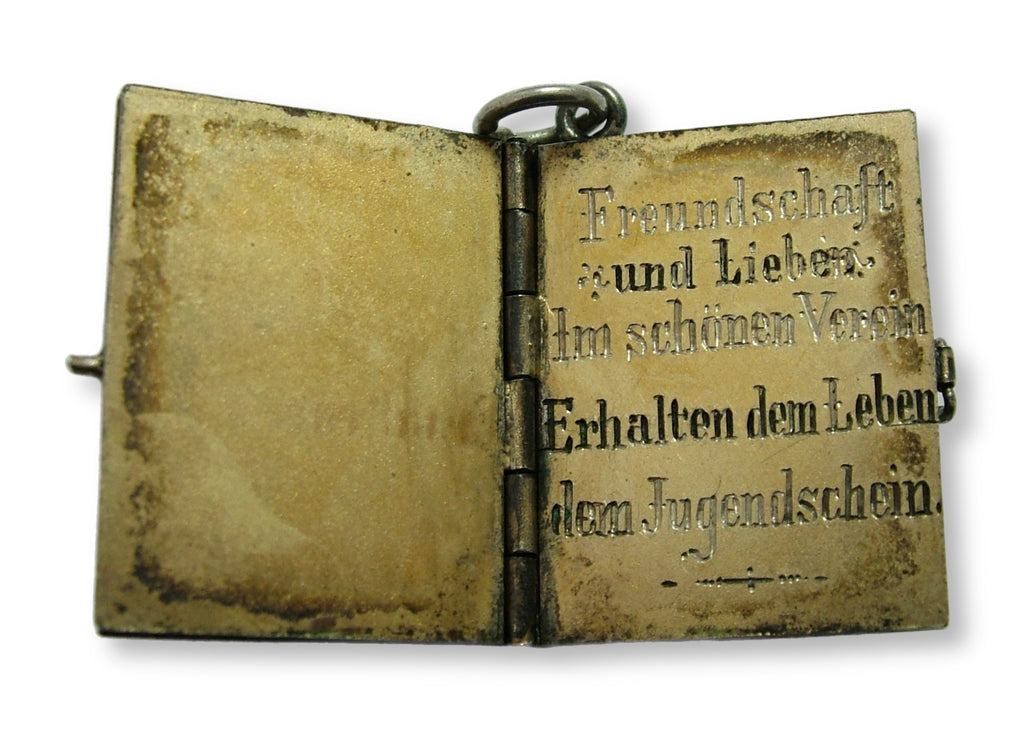 Freundschaft
und Lieben
Im schönen Verein
Erhalten dem Leben
dem Jugendschein.